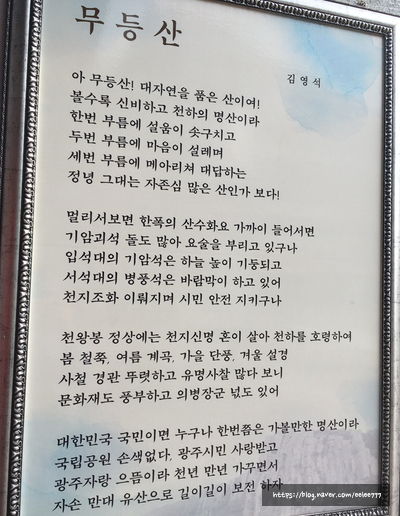 무등산
김영석
아 무등산! 대자연을 품은 산이여!
볼수록 신비하고 천하의 명산이라
한번 부름에 설움이 솟구치고
두번 부름에 마음이 설레며
세번 부름에 메아리쳐 대답하는
정녕 그대는 자존심 많은 산인가 보다!
멀리서보면 한폭의 산수화요 가까이 들어서면
기암괴석 돌도 많아 요술을 부리고 있구나
입석대의 기암석은 하늘 높이 기둥되고
서석대의 병풍석은 바람막이 하고 있어
천지조화 이뤄지며 시민 안전 지키구나
천왕봉 정상에는 천지신명 혼이 살아 천하를 호령하여
봄 철쭉, 여름 계곡, 가을 단풍, 겨울 설경
사철 경관 뚜렷하고 유명사찰 많다 보니
문화재도 풍부하고 의병장군 넋도 있어
대한민국 국민이면 누구나 한번쯤은 가볼만한 명산이라
국립공원 손색없다. 광주시민 사랑받고
광주자랑 으뜸이라 천년 만년 가꾸면서
자손 만대 유산으로 길이길이 보전 하자
https://blog.naver.com/eelee777